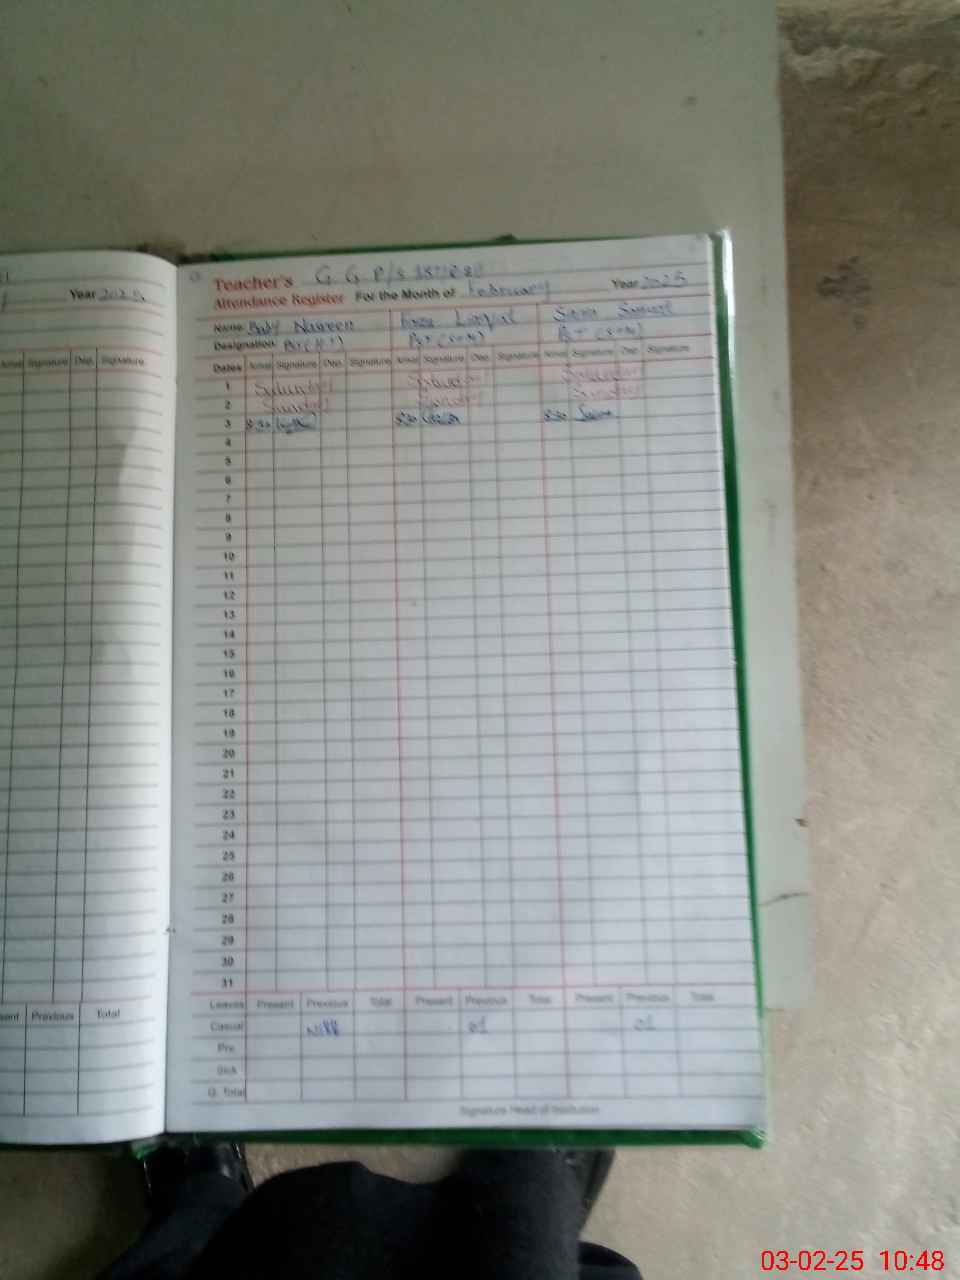 Year 2025
Teacher's G. G. P/S
Attendance Register For the Month of February Year 2025
Name Baby Nasreen Liaqat
Designation PST PST
Dates Arrival Signature Dep. Signature Arrival Signature Dep. Signature Arrival Signature Dep. Signature
Arrival Signature Dep. Signature
1 Saturday Saturday Saturday
2 Sunday Sunday Sunday
3 8:30 8:30 8:30
4
5
6
7
8
9
10
11
12
13
14
15
16
17
18
19
20
21
22
23
24
25
26
27
28
29
30
31
Leaves Present Previous Total Present Previous Total Present Previous Total
Previous Total
Casual 01 01
Pre
Sick
G. Total
Signature Head of Institution
03-02-25 10:48